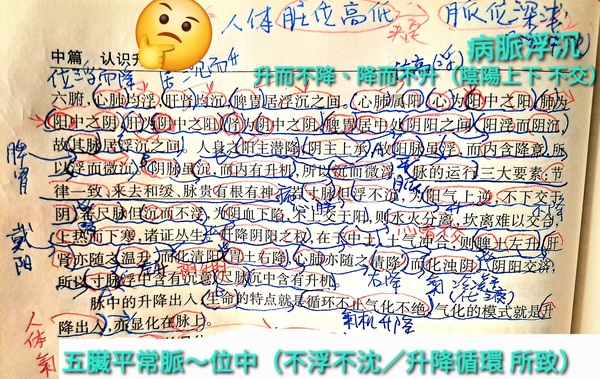 人体脏位高低 → 脉位深浅
决定
病脈浮沉
中篇 认识升
位浮而降 居沉而升
升而不降、降而不升（陰陽上下 不交）
六腑,心肺均浮,肝肾均沉,脾胃居浮沉之间。心肺属阳,心为阳中之阳,肺为
阳中之阴,肝为阴中之阳,肾为阴中之阴,脾胃居中处阴阳之间,阳浮而阴沉,
故其脉居浮沉之间。人身之阳主潜降,阴主上承,故阳脉虽浮,而内含降意,所
以浮而微沉;阴脉虽沉,而内有升机,所以沉而微浮。脉的运行三大要素:节
律一致、来去和缓、脉贵有根有神。若寸脉但浮不沉,为阳气上逆,不下交于
阴;若尺脉但沉而不浮,为阴血下陷,不上交于阳,则水火分离,坎离难以交合,
上热而下寒,诸证丛生。升降阴阳之权,在于中土,土气冲和,则脾土左升,肝
肾亦随之温升,而化清阳;胃土右降,心肺亦随之清降,而化浊阴。阴阳交济,
所以寸脉浮中含有沉意,尺脉沉中含有升机。
脉中的升降出入,生命的特点就是循环不止,气化不绝,气化的模式就是升
降出入,亦显化在脉上。
脾胃
戴阳
右降
气机升降
人体氣
五臟平常脈～位中（不浮不沈／升降循環 所致）